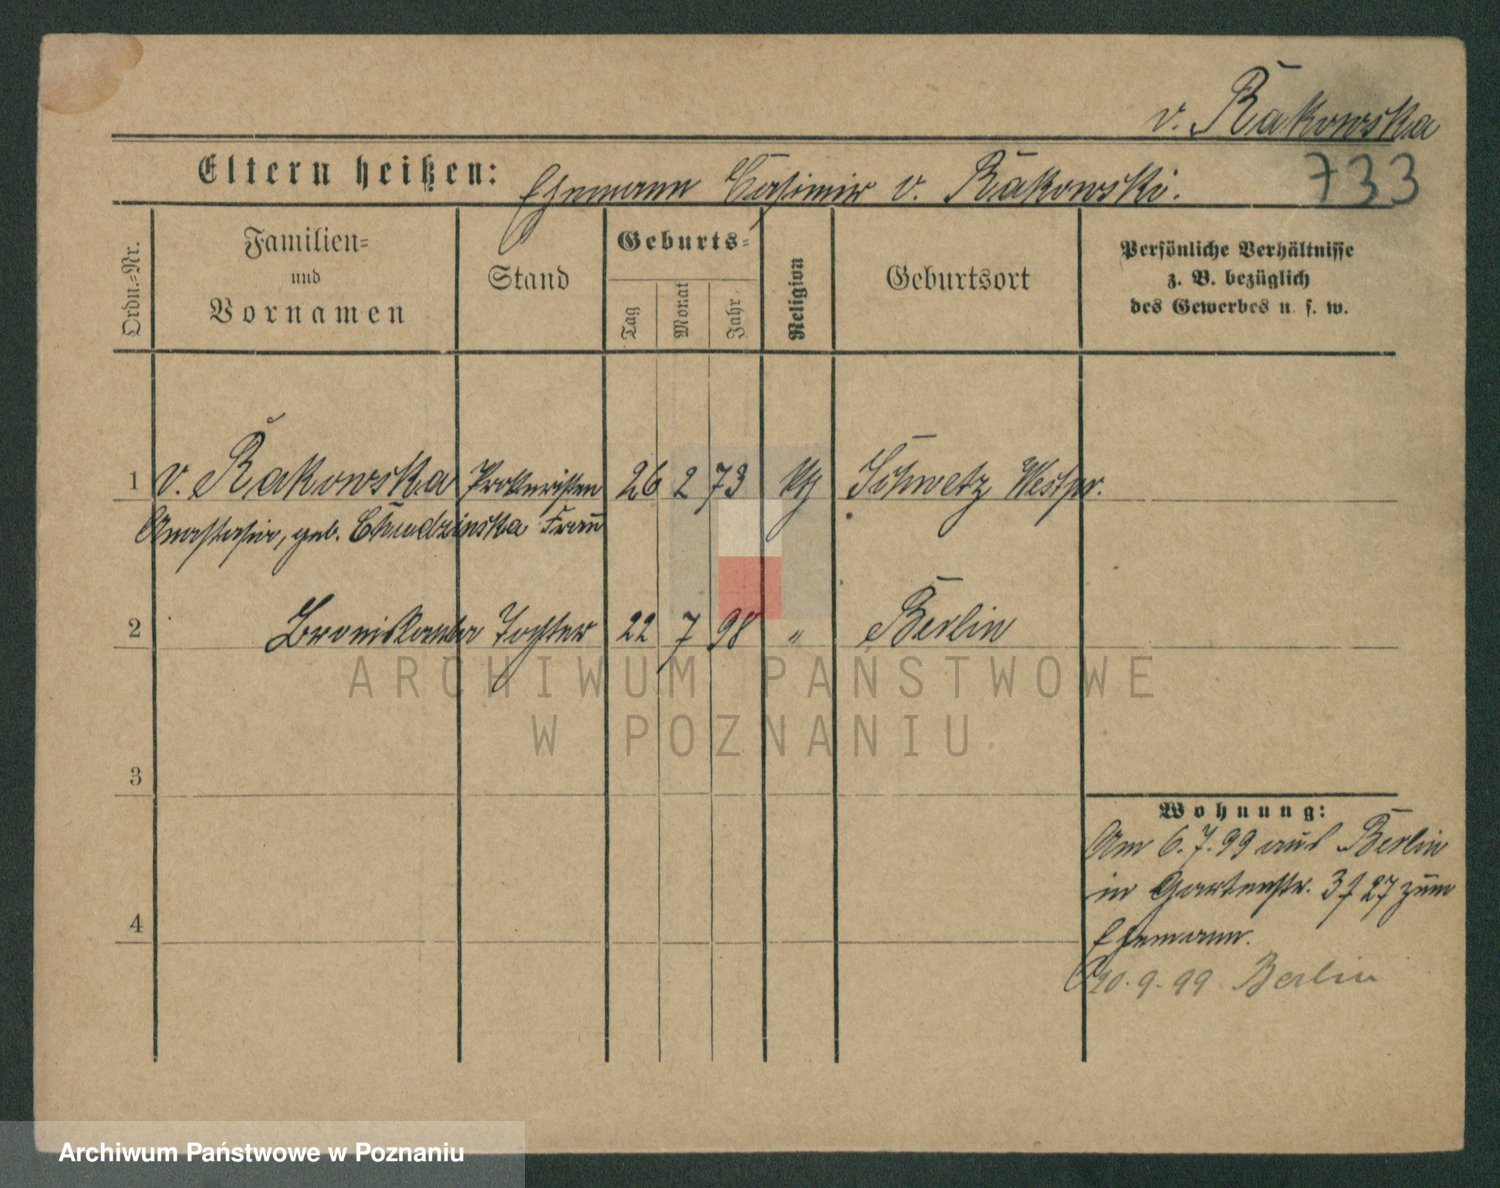 v. Rakowska
Eltern heißen: Ehemann Casimir v. Rakowski.
733
Ordn.-Nr.
Familien-
und
Vornamen
Stand
Geburts-
Tag
Monat
Jahr
Religion
Geburtsort
Persönliche Verhältnisse
z. B. bezüglich
des Gewerbes u. s. w.
1 v. Rakowska Prokuristen 26 2 73 kth Schwetz Westpr.
Anastasia, geb. Chudzinska Frau
2 Bronislawa Tochter 22 7 98 " Berlin
ARCHIWUM PAŃSTWOWE
W POZNANIU
3
Wohnung:
Am 6.7.99 aus Berlin
in Gartenstr. 3 27 zum
4
Ehemann.
10.9.99 Berlin
Archiwum Państwowe w Poznaniu